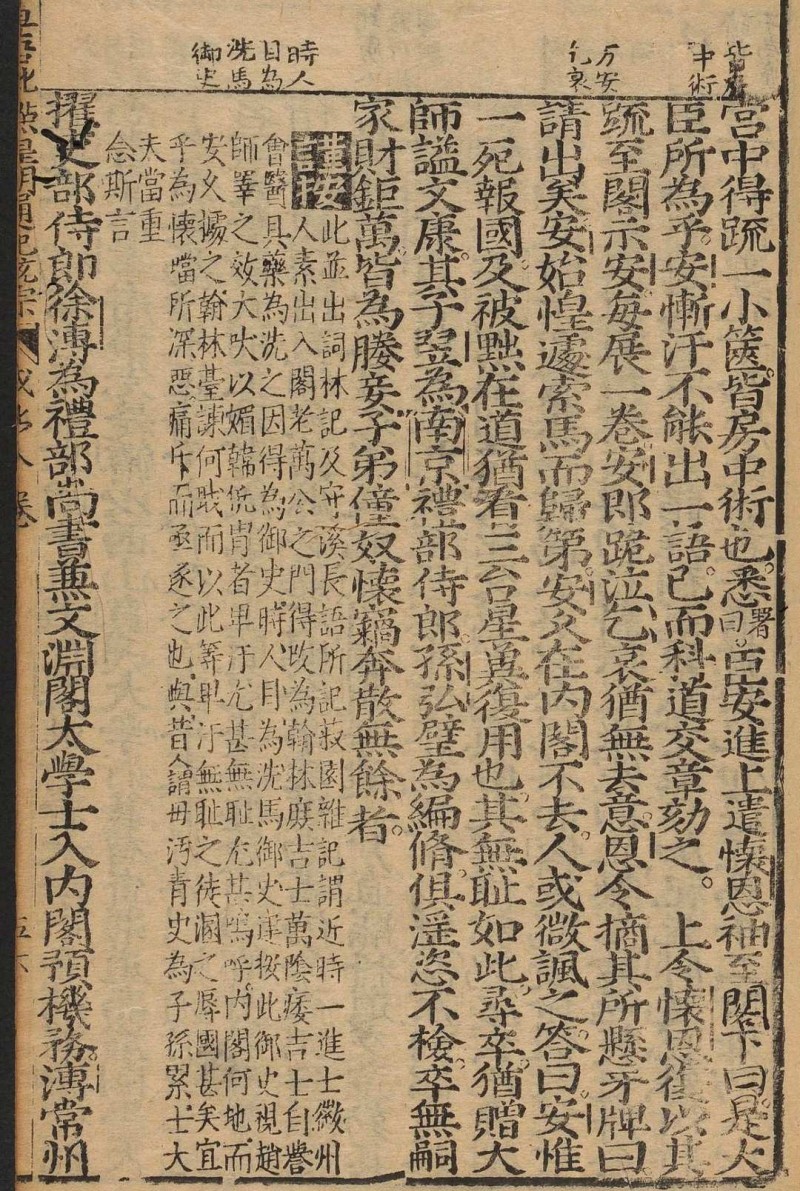 皆房
中術
万安
乞哀
時人
目為
洗馬
御史
宮中得疏一小篋皆房中術也悉署曰臣安進上遣懷恩袖至閣下曰是大
臣所為乎安慚汗不能出一語已而科道交章劾之。上令懷恩復以其
疏至閣示安每展一卷安即跪泣乞哀猶無去意恩令摘其所懸牙牌曰
請出矣安始惶遽索馬而歸第安久在內閣不去人或微諷之答曰安惟
一死報國及被黜在道猶看三台星兾復用也其無耻如此尋卒猶贈大
師謚文康其子翌為南京禮部侍郎孫弘璧為編脩俱滛恣不檢卒無嗣
家財鉅萬皆為媵妾子弟僮奴懷竊奔散無餘者。
謹按 此並出詞林記及守溪長語所記菽園雜記謂近時一進士徽州
人素出入閣老萬公之門得改為翰林庶吉士萬陰痿吉士自譽
會醫具藥為洗之因得為御史時人目為洗馬御史運按此御史視趙
師睪之效犬吠以媚韓侂冑者卑汙尤甚無耻尤甚嗚呼內閣何地而
安久據之翰林臺諫何職而以此等卑汙無耻之徒溷之辱國甚矣宜
乎為懷恩所深惡痛斥而亟逐之也與昔人謂毋汚青史為子孫累士大
夫當重
念斯言
擢吏部侍郎徐溥為禮部尚書兼文淵閣大學士入內閣預機務溥常州
皇明通紀統宗